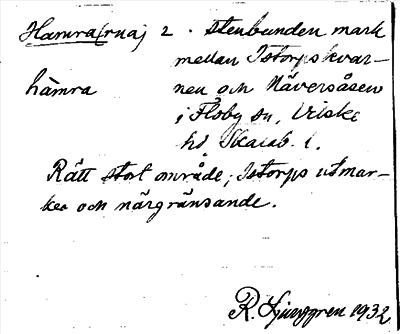 Hamra(rna) 2. stenbunden mark
mellan Istorpskvar-
hàmra nen och Näversåsen
i Floby sn, Vilske
hd Skarab. l.
Rätt stort område; Istorps utmar-
ker och närgränsande.
R. Ljunggren 1932